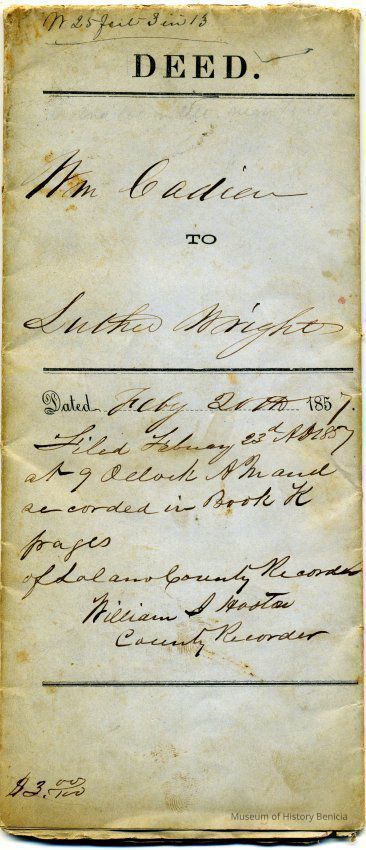 W 25 feet 3 in 13
DEED.
Wm Cadien
TO
Luther Wright
Dated Feby 20th 1857.
Filed Febuary 23d A D 1857
at 9 Oclock A M and
recorded in Book K
pages
of Solano County Recorder
William J
County Recorder
$3.00/100
Museum of History Benicia